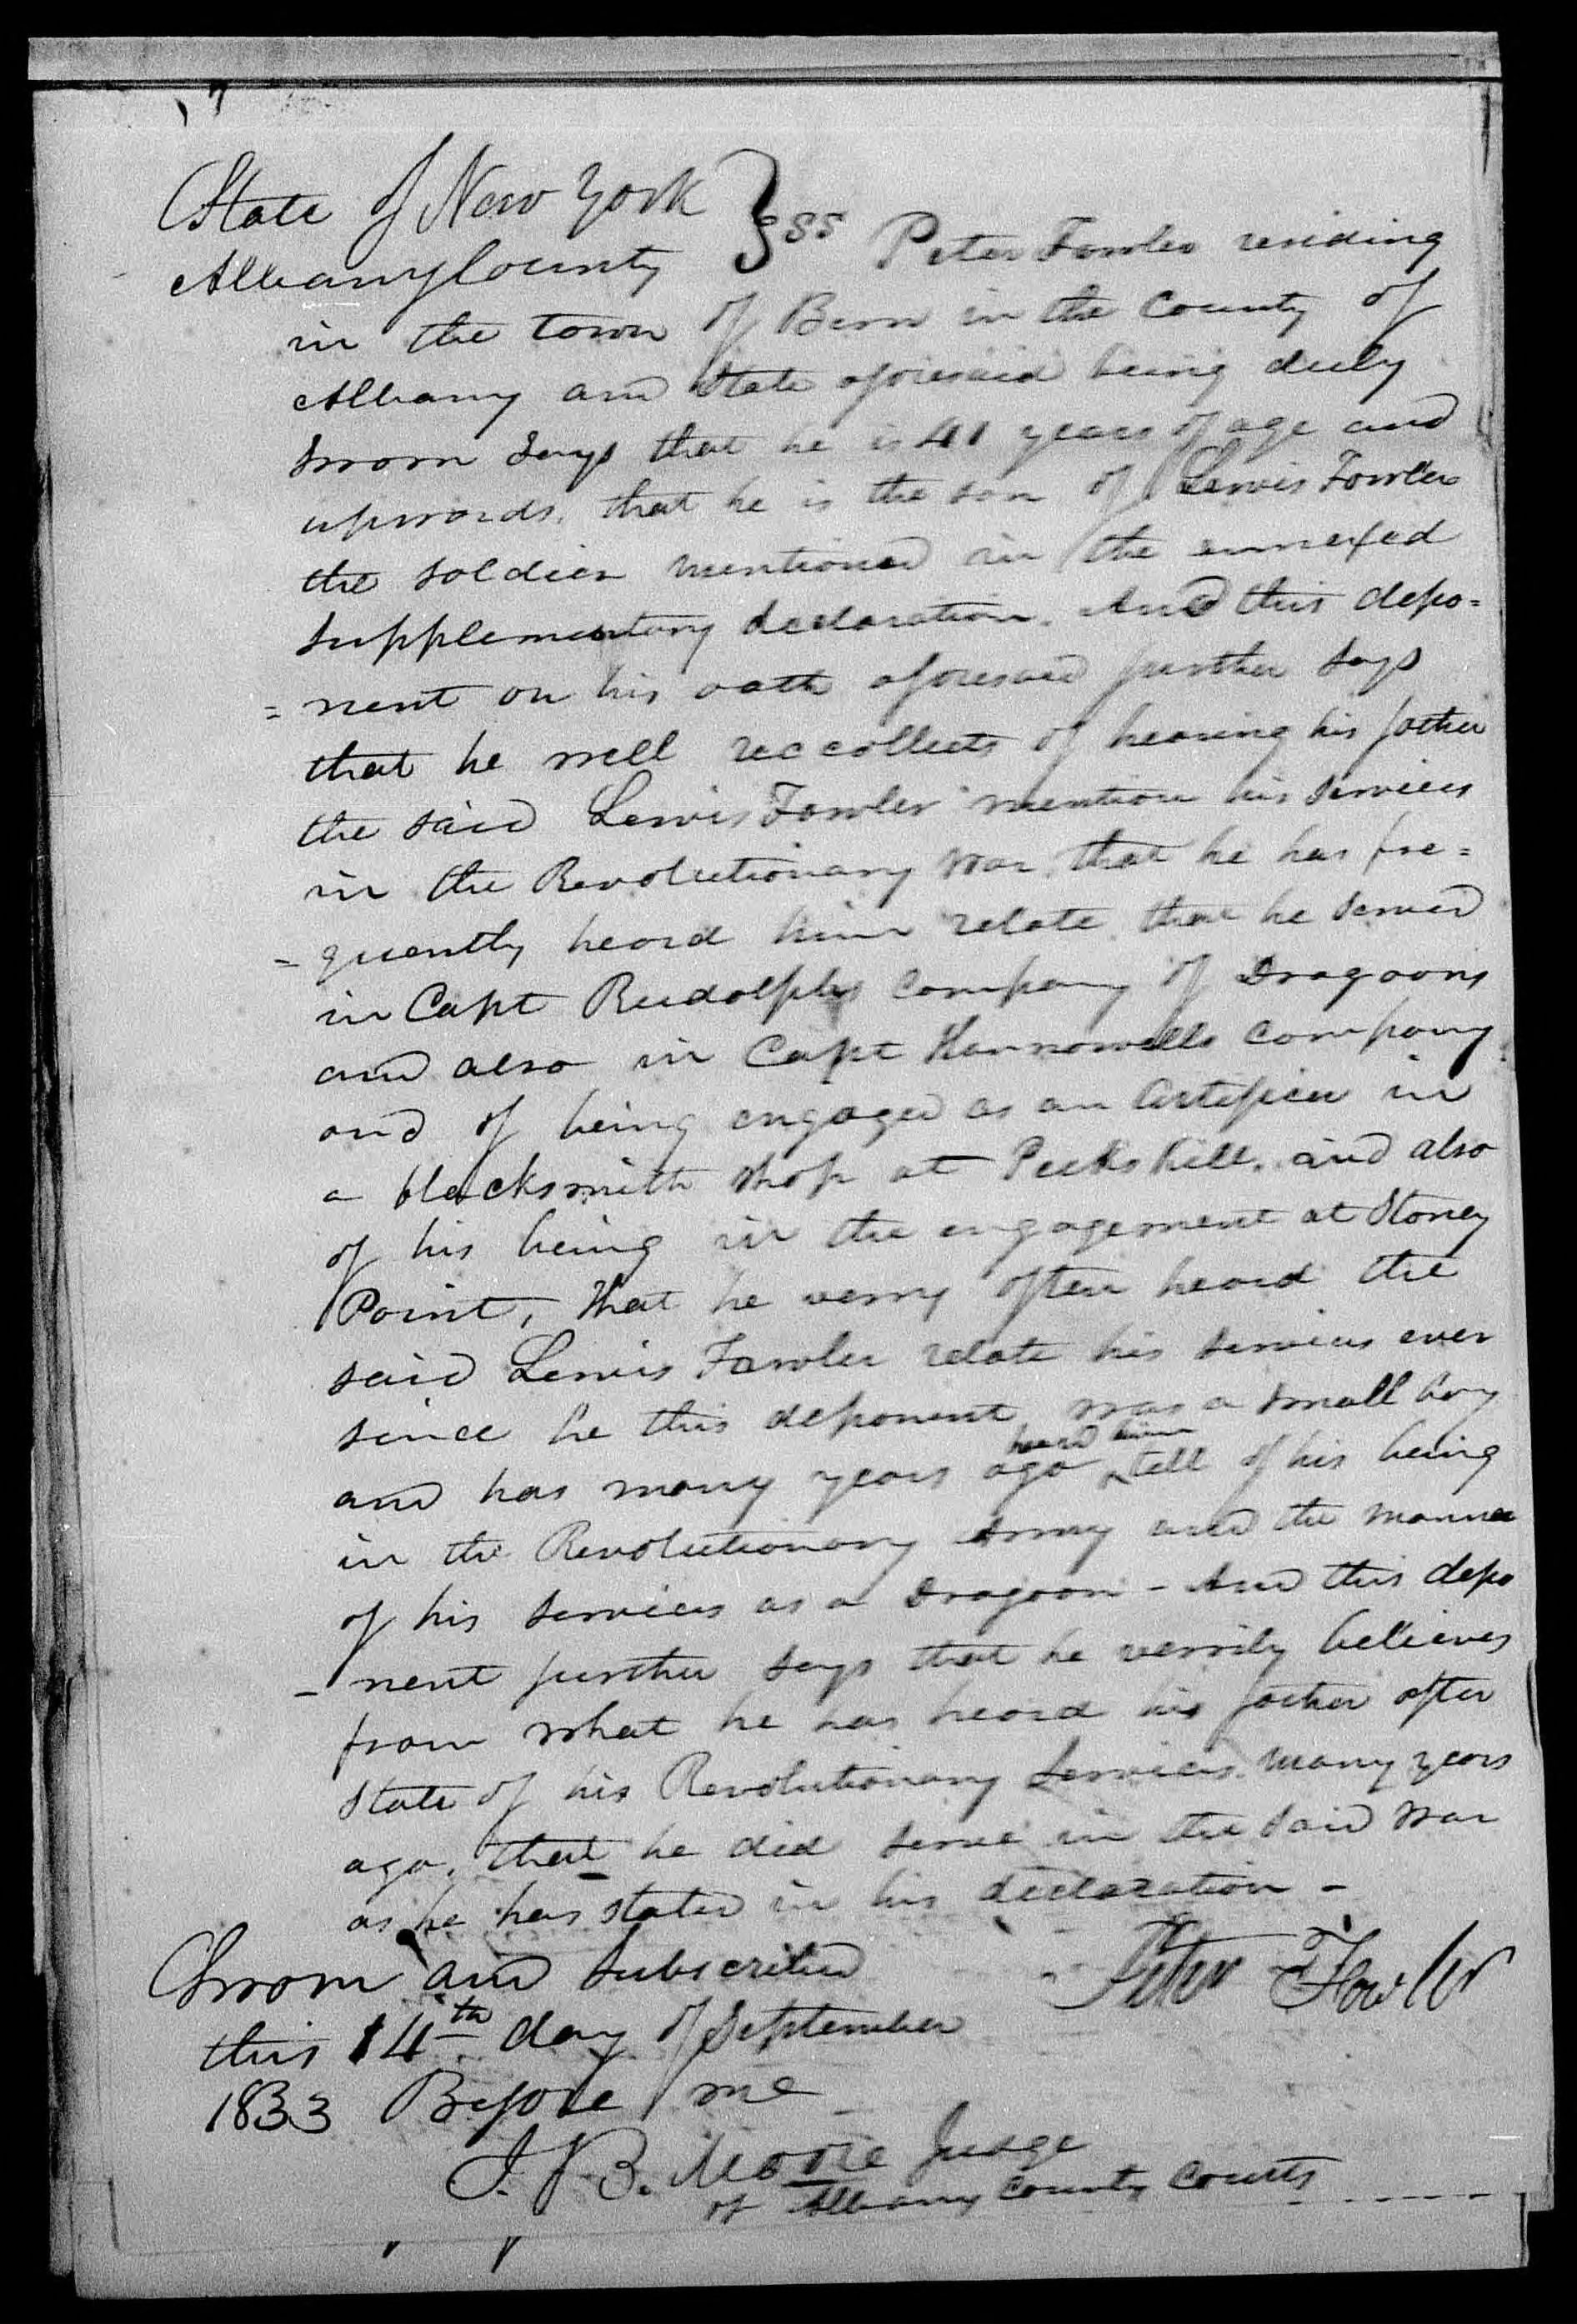 State of New York } ss Peter Fowler residing
Albany County
in the town of Bern in the County of
Albany and State aforesaid being duely
sworn says that he is 41 years of age and
upwards. that he is the son of Lewis Fowler
the soldier mentioned in the annexed
supplementary declaration. And this depo=
=nent on his oath aforesaid further says
that he well reccollects of hearing his father
the said Lewis Fowler mention his services
in the Revolutionary war. that he has fre=
=quently heard him relate that he served
in Capt Rudolphs company of Dragoons
and also in Capt company
and of being engaged as an artificer in
a blacksmith shop at Peekskill. and also
of his being in the engagement at Stoney
Point, that he verry often heard the
said Lewis Fowler relate his services ever
since he this deponent was a small boy
and has many years ago heard him tell of his being
in the Revolutionary Army and the manner
of his services as a Dragoon - And this depo
-nent further says that he verrily believes
from what he has heard his father after
state of his Revolutionary services many years
ago. that he did serve in the said war
as he has stated in his declaration -
Sworn and subscribed Peter Fowler
this 14th day of September
1833 Before me
J. B. Moore Judge
of Albany County Courts